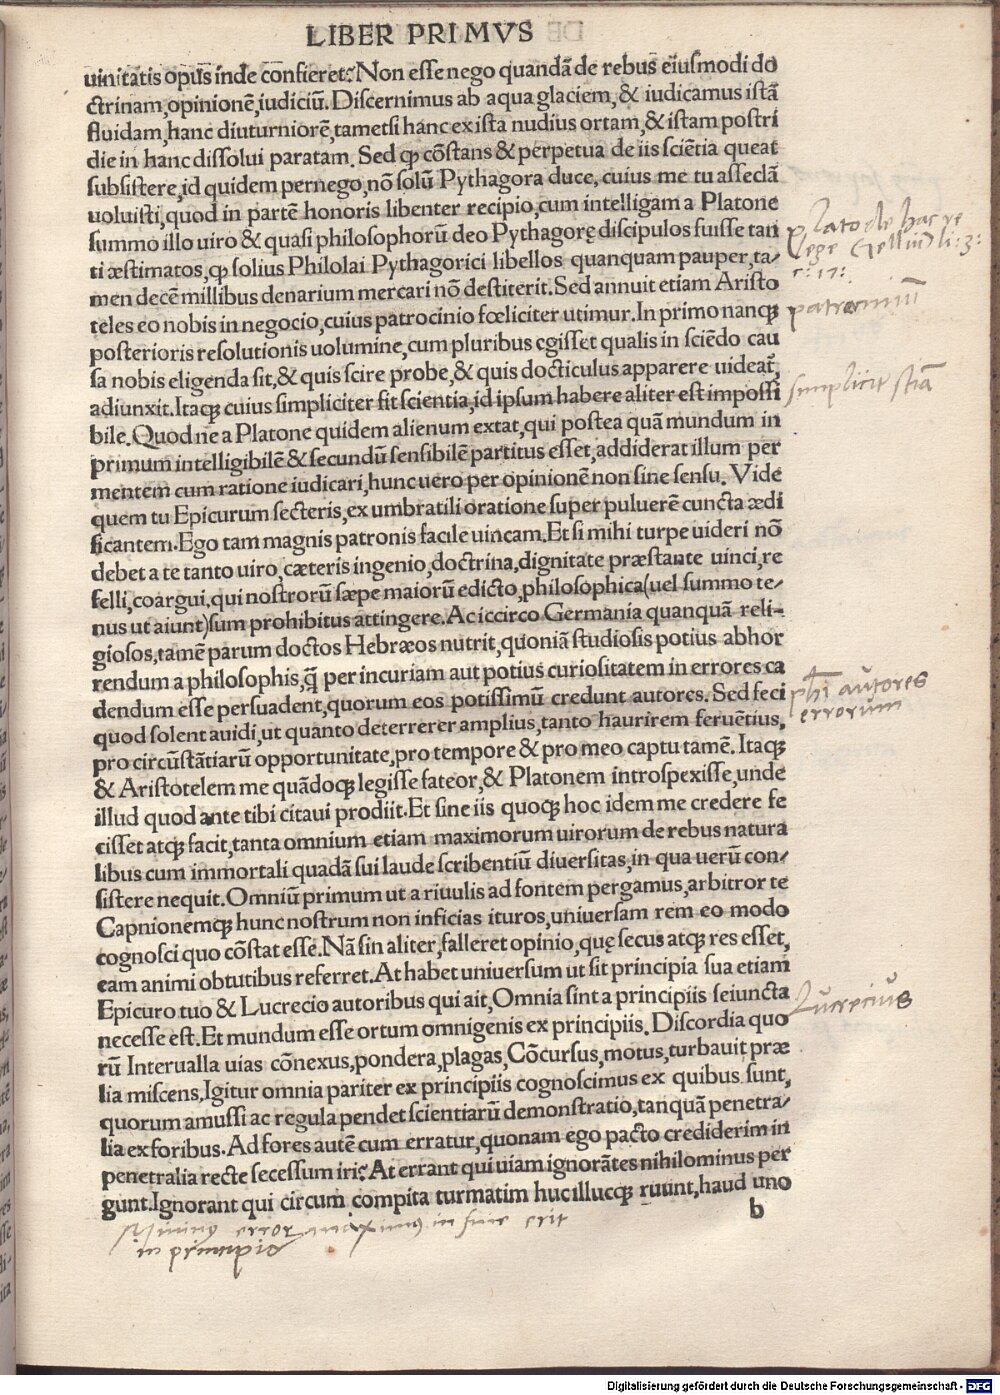 LIBER PRIMVS
uinitatis opus inde confieret? Non esse nego quandã de rebus eiusmodi do
ctrinam, opinionẽ, iudiciũ. Discernimus ab aqua glaciem, & iudicamus istã
fluidam, hanc diuturniorẽ, tametsi hanc ex ista nudius ortam, & istam postri
die in hanc dissolui paratam. Sed ꝙ cõstans & perpetua de iis sciẽtia queat
subsistere, id quidem pernego, nõ solũ Pythagora duce, cuius me tu asseclã
uoluisti, quod in partẽ honoris libenter recipio, cum intelligam a Platone
summo illo uiro & quasi philosophorũ deo Pythagorę discipulos fuisse tan
ti æstimatos, ꝙ solius Philolai Pythagorici libellos quanquam pauper, ta/
men decẽ millibus denarium mercari nõ destiterit. Sed annuit etiam Aristo
teles eo nobis in negocio, cuius patrocinio fœliciter utimur. In primo nanqꝫ
posterioris resolutionis uolumine, cum pluribus egisset qualis in sciẽdo cau
sa nobis eligenda sit, & quis scire probe, & quis docticulus apparere uideat᷑,
adiunxit. Itaqꝫ cuius simpliciter sit scientia, id ipsum habere aliter est impossi
bile. Quod ne a Platone quidem alienum extat, qui postea quã mundum in
primum intelligibilẽ & secundũ sensibilẽ partitus esset, addiderat illum per
mentem cum ratione iudicari, hunc uero per opinionẽ non sine sensu. Vide
quem tu Epicurum secteris, ex umbratili oratione super puluerẽ cuncta ædi
ficantem. Ego tam magnis patronis facile uincam. Et si mihi turpe uideri nõ
debet a te tanto uiro, cæteris ingenio, doctrina, dignitate præstante uinci, re
felli, coargui, qui nostrorũ sæpe maiorũ edicto, philosophica (uel summo te/
nus ut aiunt) sum prohibitus attingere. Ac iccirco Germania quanquã reli-
giosos, tamẽ parum doctos Hebræos nutrit, quoniã studiosis potius abhor
rendum a philosophis, q̃ per incuriam aut potius curiositatem in errores ca
dendum esse persuadent, quorum eos potissimũ credunt autores. Sed feci
quod solent auidi, ut quanto deterrerer amplius, tanto haurirem feruẽtius,
pro circũstãtiarũ opportunitate, pro tempore & pro meo captu tamẽ. Itaqꝫ
& Aristotelem me quãdoqꝫ legisse fateor, & Platonem introspexisse, unde
illud quod ante tibi citaui prodiit. Et sine iis quoqꝫ hoc idem me credere fe
cisset atqꝫ facit, tanta omnium etiam maximorum uirorum de rebus natura
libus cum immortali quadã sui laude scribentiũ diuersitas, in qua uerũ con/
sistere nequit. Omniũ primum ut a riuulis ad fontem pergamus, arbitror te
Capnionemqꝫ hunc nostrum non inficias ituros, uniuersam rem eo modo
cognosci quo cõstat esse. Nã sin aliter, falleret opinio, quę secus atqꝫ res esset,
eam animi obtutibus referret. At habet uniuersum ut sit principia sua etiam
Epicuro tuo & Lucrecio autoribus qui ait, Omnia sint a principiis seiuncta
necesse est. Et mundum esse ortum omnigenis ex principiis. Discordia quo
rũ Interualla uias cõnexus, pondera, plagas, Cõcursus, motus, turbauit præ
lia miscens, Igitur omnia pariter ex principiis cognoscimus ex quibus sunt,
quorum amussi ac regula pendet scientiarũ demonstratio, tanquã penetra/
lia ex foribus. Ad fores autẽ cum erratur, quonam ego pacto crediderim in
penetralia recte secessum iri? At errant qui uiam ignorãtes nihilominus per
gunt. Ignorant qui circum compita turmatim huc illucqꝫ ruunt, haud uno
b
Plato de hac re
lege Gelliũ li: 3:
c: 17:
patrociniũ
simplicit stiã
phi autores
errorum
Lucrecius
Minimus error maximus in fine erit
in principio
Digitalisierung gefördert durch die Deutsche Forschungsgemeinschaft - DFG